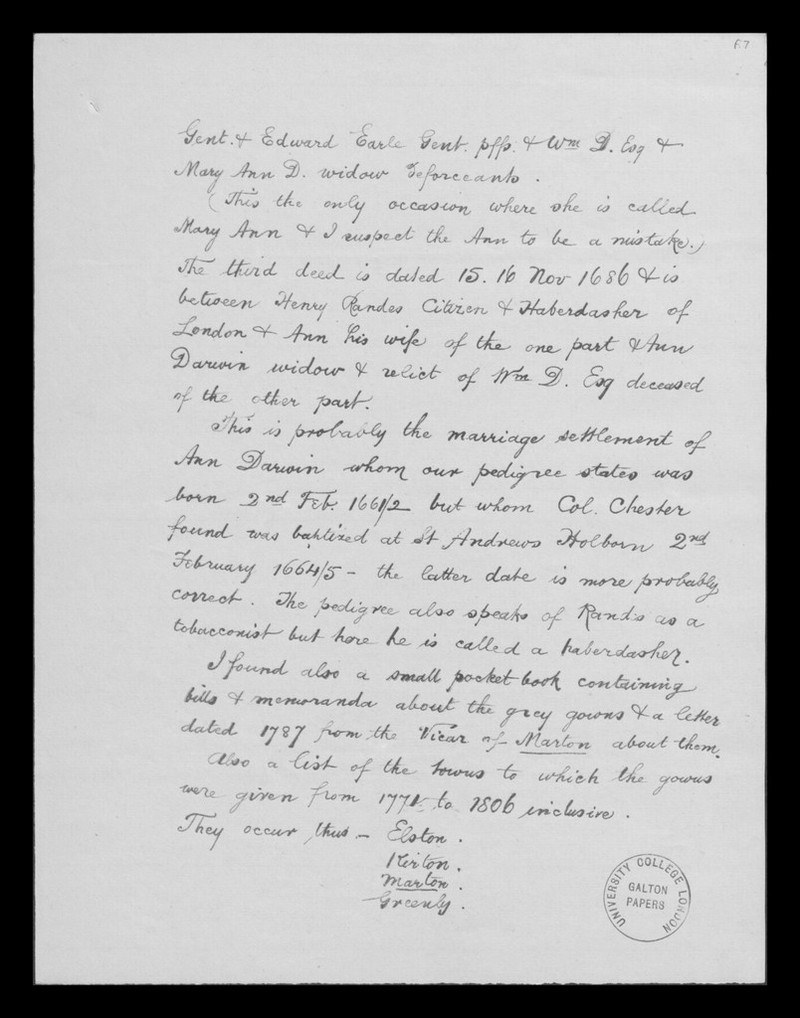 67
Gent. & Edward Earle Gent. plfs. & Wm D. Esq &
Mary Ann D. widow Deforceants.
(This the only occasion where she is called
Mary Ann & I suspect the Ann to be a mistake.)
The third deed is dated 15. 16 Nov 1686 & is
between Henry Randes Citizen & Haberdasher of
London & Ann his wife of the one part & Ann
Darwin widow & relict of Wm D. Esq deceased
of the other part.
This is probably the marriage settlement of
Ann Darwin whom our pedigree states was
born 2nd Feb. 1661/2 but whom Col. Chester
found was baptized at St Andrews Holborn 2nd
February 1664/5 - the latter date is more probably
correct. The pedigree also speaks of Rands as a
tobacconist but here he is called a haberdasher.
I found also a small pocket book containing
bills & memoranda about the grey gowns & a letter
dated 1787 from the Vicar of Marton about them.
Also a list of the towns to which the gowns
were given from to 1806 inclusive.
They occur thus - Elston.
Kirton.
Marton.
Greenly.
UNIVERSITY COLLEGE LONDON
GALTON
PAPERS